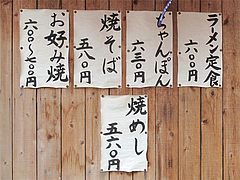 ラーメン定食
六〇〇円
ちゃんぽん
六三〇円
焼そば
五八〇円
お好み焼
六〇〇〜七〇〇円
焼めし
五六〇円